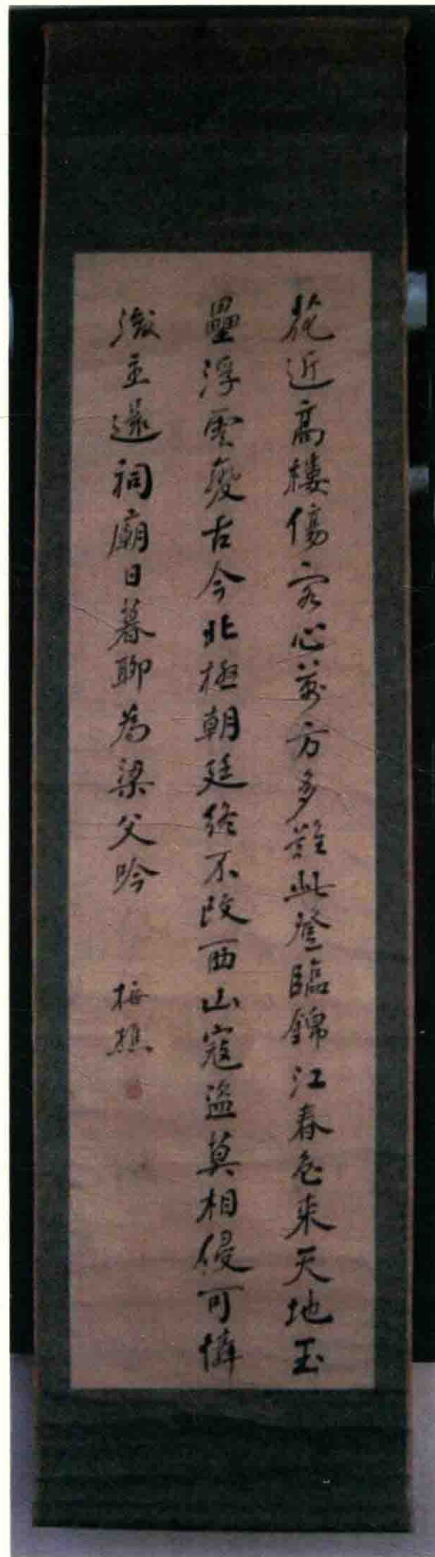 花近高樓傷客心萬方多難此登臨錦江春色來天地玉
壘浮雲變古今北極朝廷終不改西山寇盜莫相侵可憐
後主還祠廟日暮聊為梁父吟
梅樵